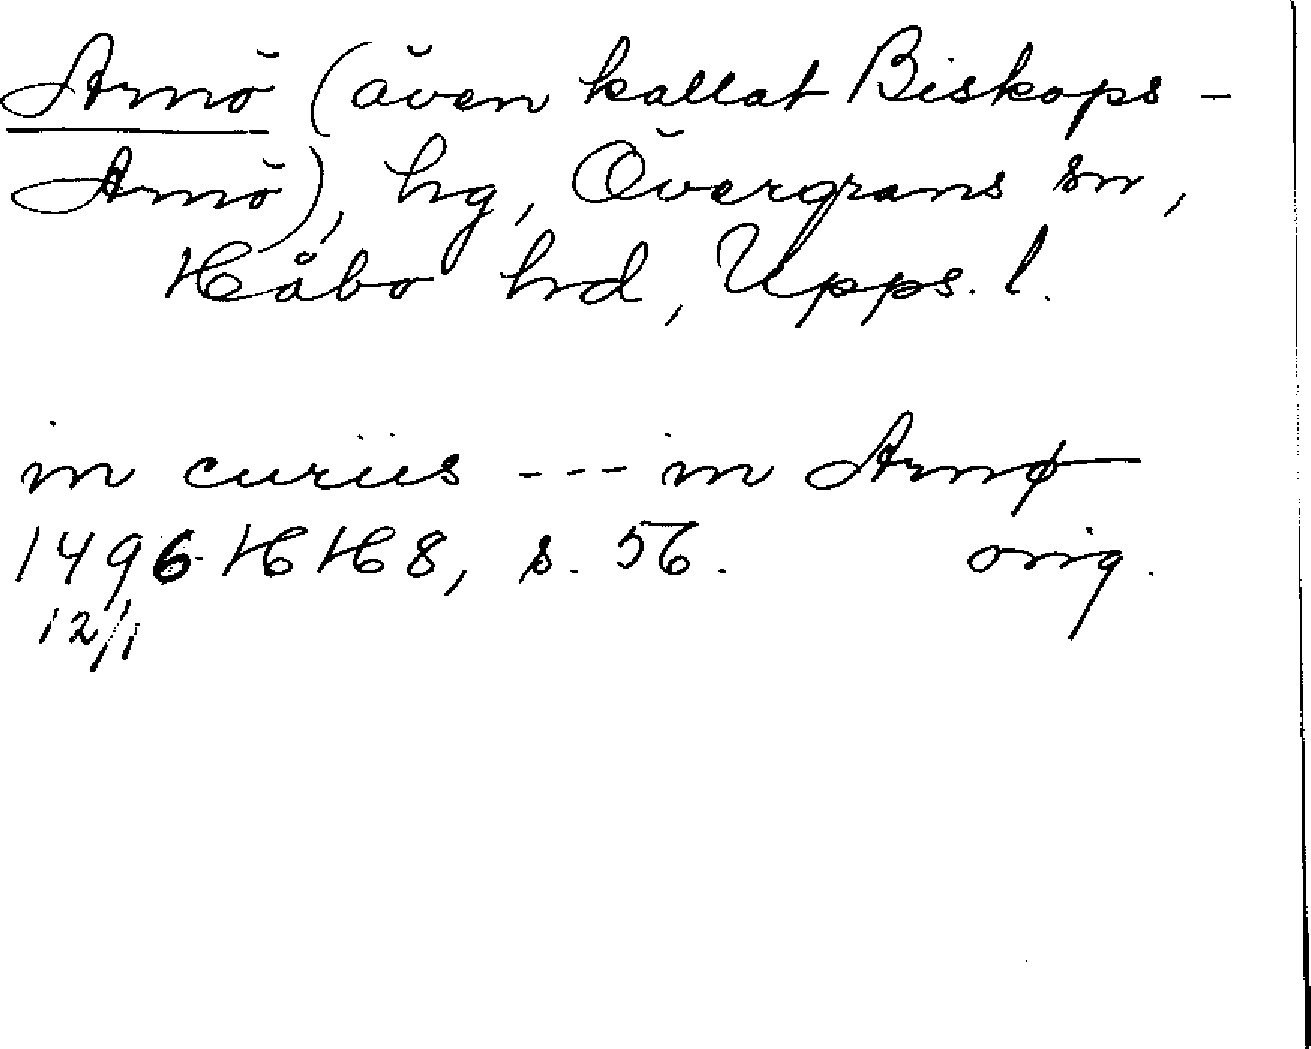 Arnö (även kallat Biskops-
Arnö), hg, Övergrans sn,
Håbo hd, Upps. l.
in curiis --- in Arnø
1496 HH 8, s. 56. orig.
12/1